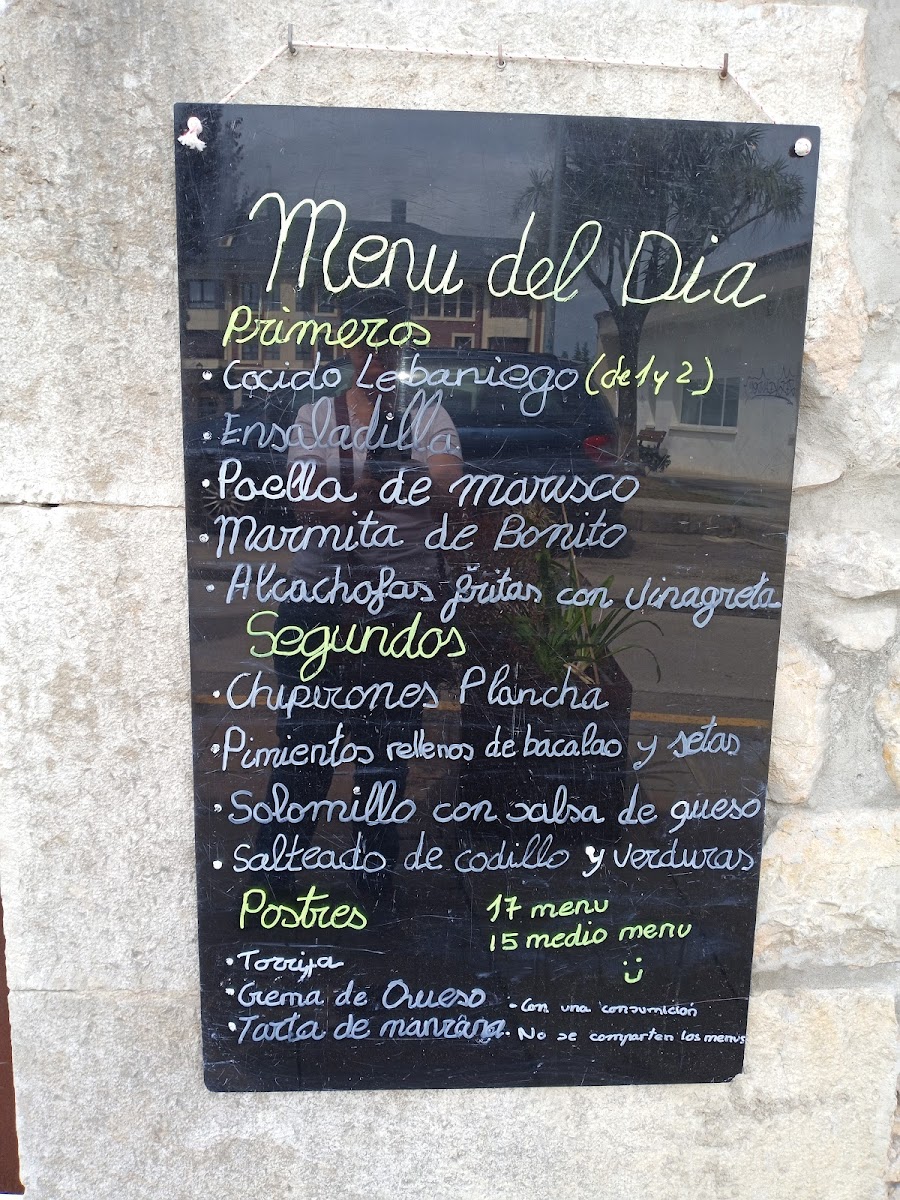 Menu del Dia
Primeros
• Cocido Lebaniego (de 1 y 2)
• Ensaladilla
• Paella de marisco
• Marmita de Bonito
• Alcachofas fritas con vinagreta
Segundos
• Chipirones Plancha
• Pimientos rellenos de bacalao y setas
• Solomillo con salsa de queso
• Salteado de codillo y verduras
Postres
17 menu
15 medio menu
• Torrija
• Crema de Orujo
• Tarta de manzana
• Con una consumición
• No se comparten los menus